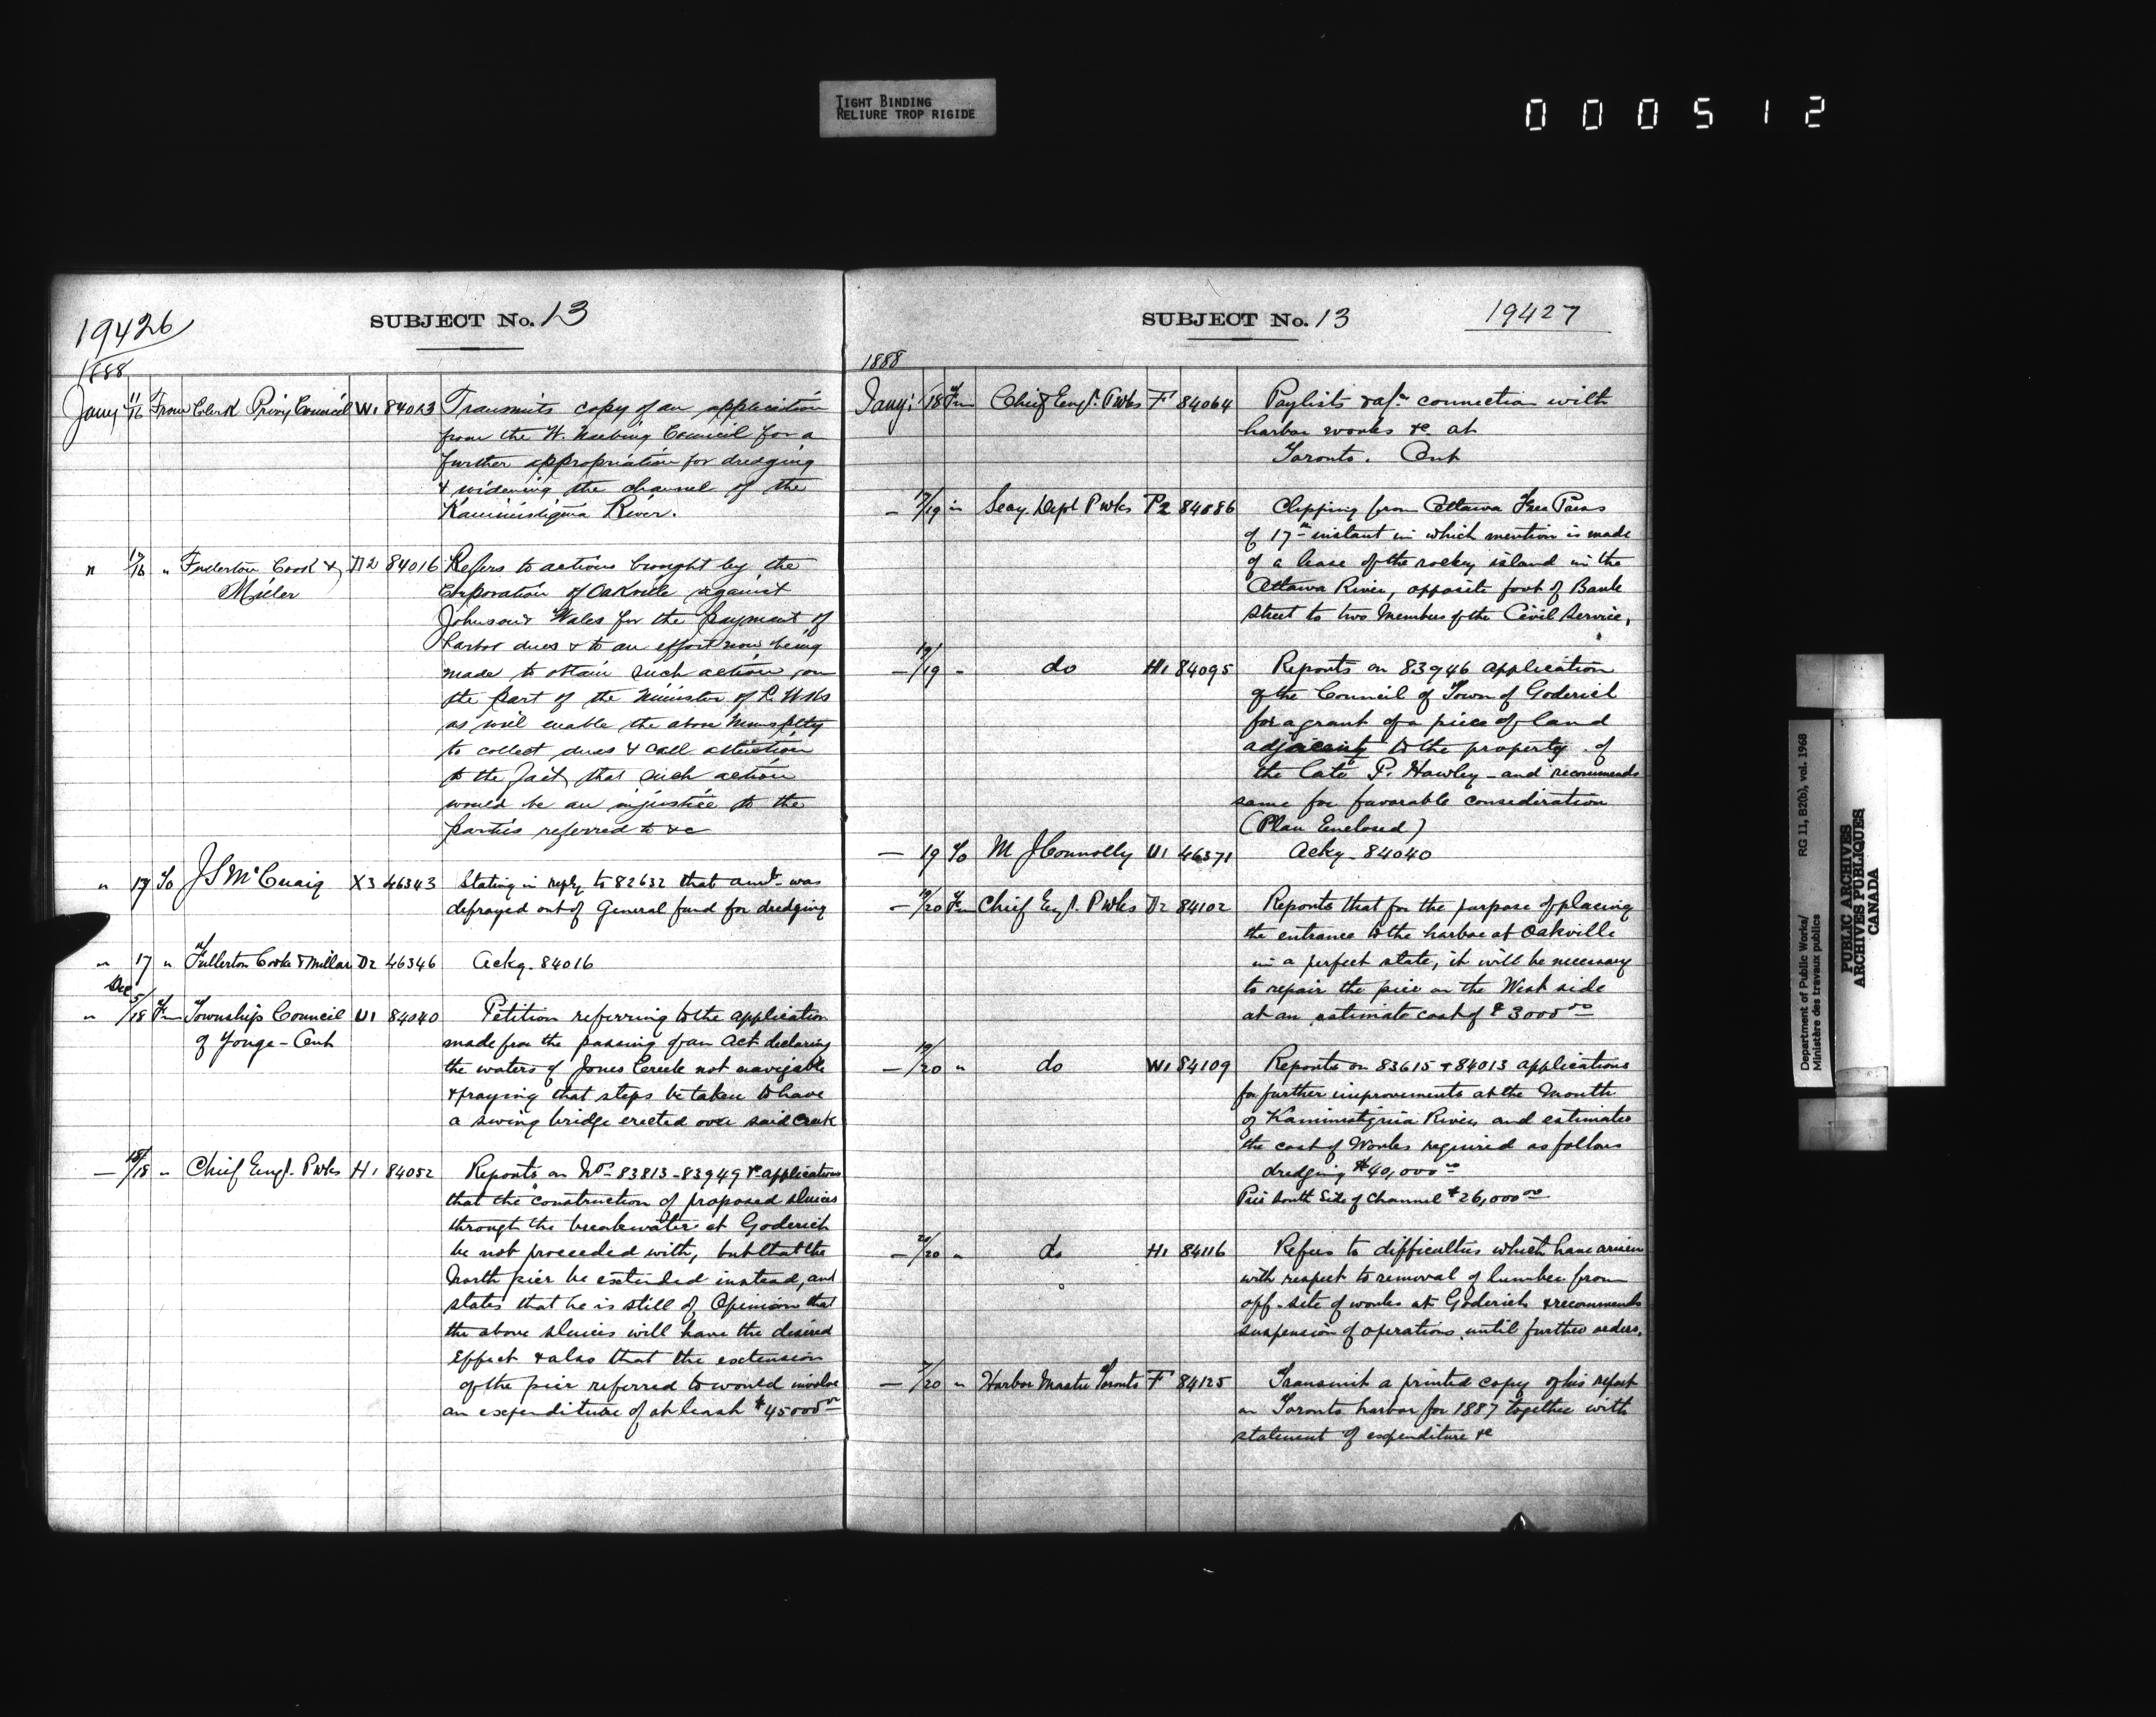 TIGHT BINDING
RELIURE TROP RIGIDE
000512
19426
SUBJECT No. 13
1888
Jany 11/16 From Clerk Privy Council W1 84013 Transmits copy of an application
from the W. Neebing Council for a
further appropriation for dredging
& widening the channel of the
Kaministiquia River.
" 12/16 " Fullerton Cook & D2 84016 Refers to actions brought by the
Miller Corporation of Oakville against
Johnson & Wales for the payment of
harbor dues & to an effort now being
made to obtain such action on
the part of the Minister of P. Wks
as will enable the above
to collect dues & call attention
to the fact that such action
would be an injustice to the
parties referred to &c
" 17 To J S McCuaig X3 46343 Stating in reply to 82632 that amt was
defrayed out of General fund for dredging
" 17 " Fullerton Cook & Millar D2 46346 Ackg. 84016
Dec
" 5/18 Fm Township Council U1 84040 Petition referring to the application
of Yonge - Ont made for the passing of an Act declaring
the waters of Jones Creek not navigable
& praying that steps be taken to have
a swing bridge erected over said Creek
— 18/18 " Chief Engr. P wks H1 84052 Reports on Nos 83813 - 83949 applications
that the construction of proposed sluices
through the breakwater at Goderich
be not proceeded with, but that the
North pier be extended instead, and
states that he is still of Opinion that
the above sluices will have the desired
Effect & also that the extension
of the pier referred to would involve
an expenditure of at least $45000 00
SUBJECT No. 13
19427
1888
Jany: 18 Fm Chief Engr. P wks F 84064 Paylists &a connection with
harbor works &c at
Toronto. Ont
— 17/19 " Secy. Dept P wks P2 84086 Clipping from Ottawa Free Press
of 17th instant in which mention is made
of a lease of the rocky island in the
Ottawa River, opposite foot of Bank
street to two Members of the Civil Service,
— 19/19 - do H1 84095 Reports on 83946 application
of the Council of Town of Goderich
for a grant of a piece of land
adjacent to the property of
the late P. Hawley - and recommends
same for favorable consideration
(Plan Enclosed)
— 19 To M J Connolly U1 46371 Ackg - 84040
— 19/20 Fm Chief Engr. P Wks D2 84102 Reports that for the purpose of placing
the entrance to the harbor at Oakville
in a perfect state, it will be necessary
to repair the pier on the West side
at an estimate cost of $3000 00
— 19/20 " do W1 84109 Reports on 83615 & 84013 applications
for further improvements at the Mouth
of Kaministiquia River, and estimates
the cost of Works required as follows
dredging $40,000 00
Pier South Side of Channel $26,000 00
— 20/20 " do H1 84116 Refers to difficulties which have arisen
with respect to removal of lumber from
off - site of works at Goderich & recommends
suspension of operations until further orders.
— 7/20 " Harbor Master Toronto F 84125 Transmit a printed copy of his report
on Toronto harbor for 1887 together with
statement of expenditure &c
Department of Public Works/
Ministère des travaux publics
RG 11, B2(b), vol. 1968
PUBLIC ARCHIVES
ARCHIVES PUBLIQUES
CANADA